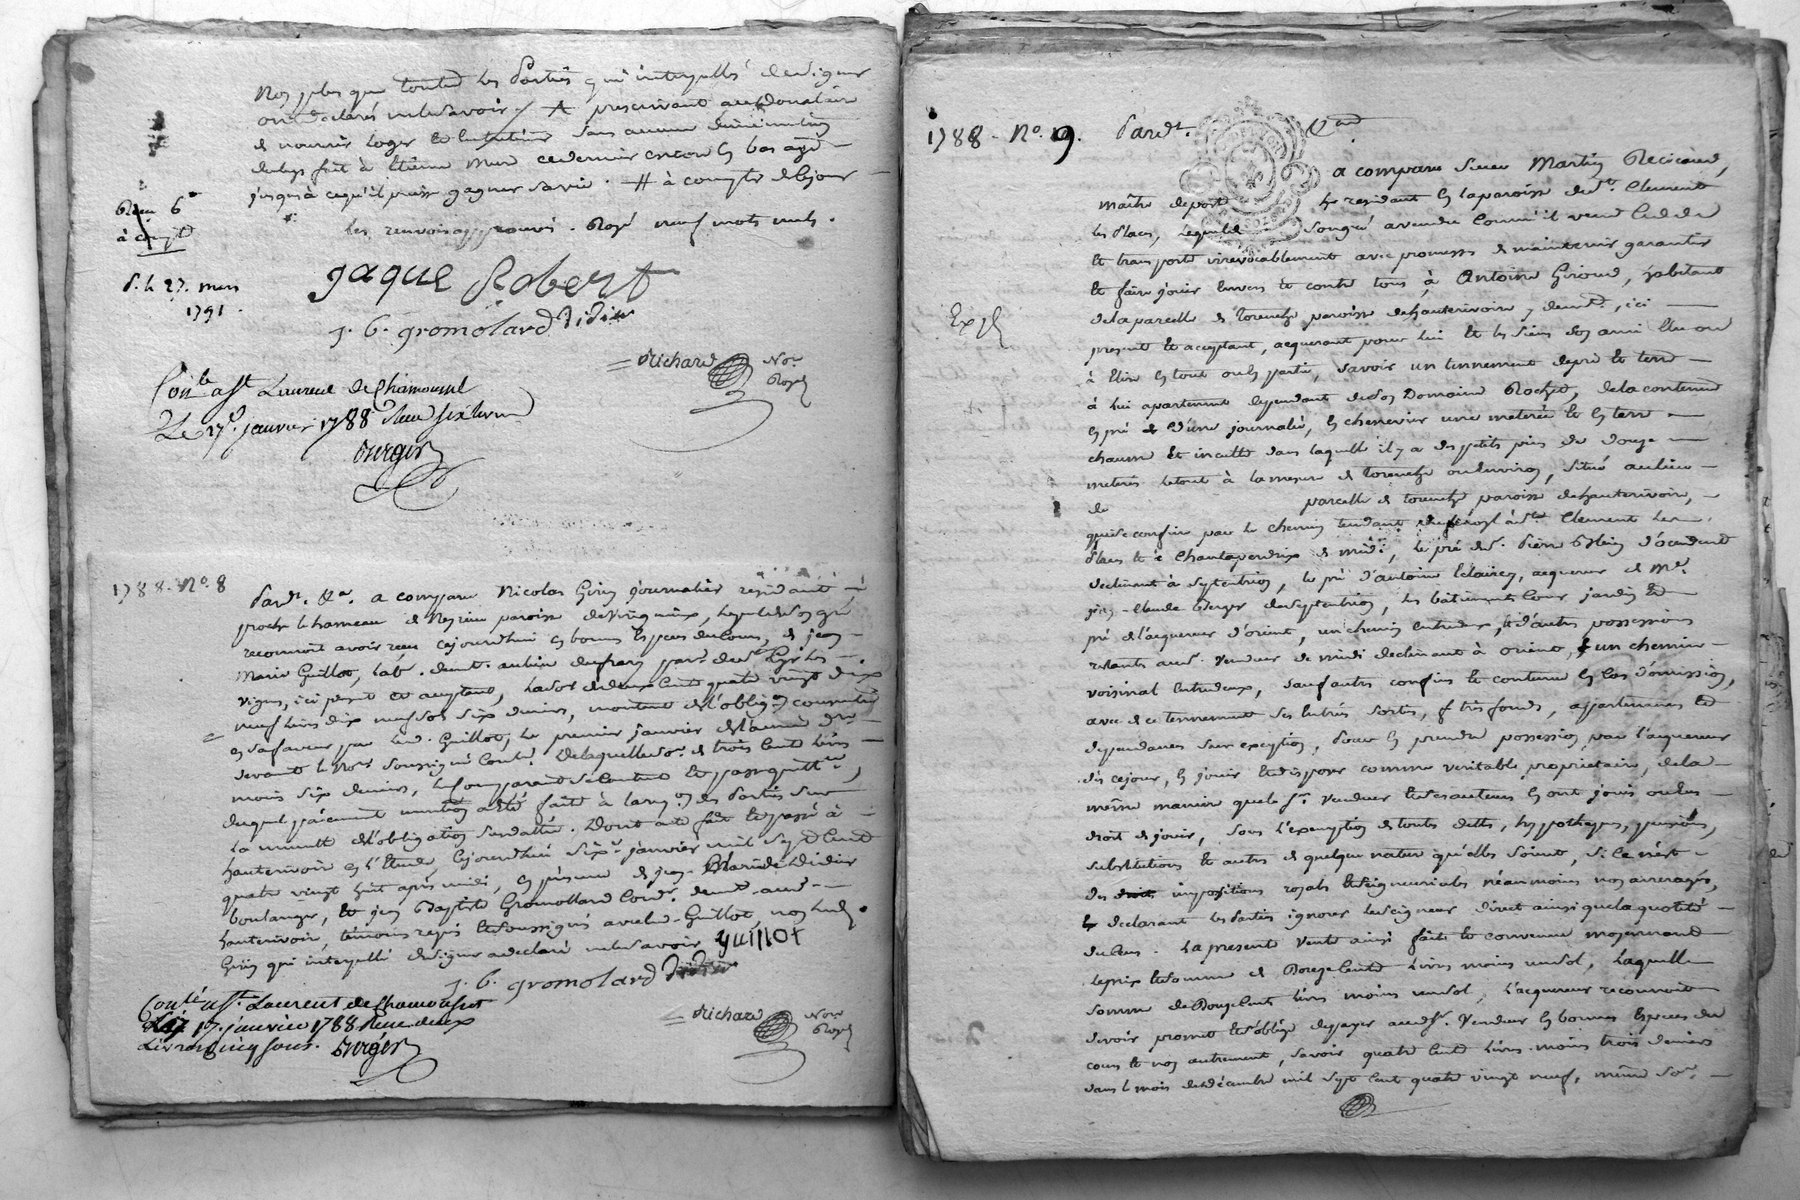 non plus que toutes les parties qui interpellés de signer
ont declarés ne le savoir / A prescrivant au donataire
de nourir loger et entretenir sans aucune diminution
jusqu'à ce qu'il puisse gagner sa vie . # à compte de ce jour
les renvois approuvés . Rayé neuf mots nuls .
Receu 6#
à compte
d. le 27. mars
1791 .
jaque Robert
j. b. gromolard didier
Richard Nore
Royal
Conlé a St Laurent de Chamousset
Le 17. janvier 1788 Receu six livres
Durger
1788. No. 8
Pardt. &a. a comparu Nicolas Giry journalier residant
proche le hameau de
reconnoit avoir reçu cejourd'hui en bonnes Especes du Cours, de jean
Marie Guillot, lab. demt. au lieu
vignes, ici present et acceptant, la somme de deux Cent quatre vingt dix
neuf livres dix neuf sols six deniers, montant de l'obligon consentie
en sa faveur par led. Guillot, le premier janvier
devant le Nore soussigné Contlé. De laquelle some de trois Cent livres
moins six deniers, le Comparant se Contente et
duquel païement mention a été faite à la requon des Parties sur
la minute de l'obligation susdattée . Dont acte fait et passé à
hauterivoire en l'Etude, cejourd'hui six janvier mil sept Cent
quatre vingt huit après midi, en présence de jean Marie Didier
boulanger, et jean Baptiste Gromollard Cordr. demt. aud.
hauterivoire, témoins requis et soussignés avec led. Guillot, non led.
Giry qui interpellé de signer a declaré ne le savoir guillot
j. b. gromolard didier
Richard Nore
Royal
Conlé a St. Laurent de Chamousset
Le 17. janvier 1788 Receu deux
Livres cinq sous. Durger
1788 - No. 9.
Pardt. &a
a comparu sieur Martin
maître de poste residant en la paroisse de St. Clement
les Places, lequel de son gré a vendu comme il vend Cede
et transporte irrevocablement avec promesse de maintenir garantir
et faire jouir envers et contre tous à Antoine Giroud, habitant
de la parcelle de Torenche paroisse de hauterivoire y demt., ici
present et acceptant, acquerant pour lui et les siens
à Elire en tout ou en partie, savoir un tennement de pré et terre
à lui apartenant dependant de son Domaine Rochet, de la contenue
en pré d'une journalée, en chenevier une meterée et en terre
chaume et inculte dans laquelle il y a des petits pins de douze
meterées le tout à la mesure de Torenche ou environ, situé au lieu
de parcelle de torenche paroisse de hauterivoire,
qui se confine par le chemin tendant à St. Clement les
Places et de Chantaperdrix de midi, le pré de Sr. Pierre d'occident
declinant à septentrion, le pré d'antoine acquereur de Me.
jean-Claude Berger de septentrion, les bâtiments cour jardin et
pré de l'acquereur d'orient, un chemin entredeux, et d'autres possessions
restantes aud. vendeur de midi declinant à orient, un chemin
voisinal entredeux, sauf autres confins et contenue en cas d'omission,
avec de ce tennement ses Entrées sorties, tres fonds, appartenances et
dependances sans exception, pour en prendre possession par l'acquereur
dès ce jour, en jouir et disposer comme veritable proprietaire, de la
même maniere que le Sr. vendeur et ses auteurs en ont jouis ou eu
droit de jouir, sous l'exemption de toutes dettes, hypotheques, pensions,
substitutions et autres de quelque nature qu'elles soient, si ce n'est
des impositions royales et seigneuriales néanmoins non arreragées,
declarant les parties ignorer le seigneur direct ainsi que la quotité
du Cens . La presente vente ainsi faite et convenue moyennant
le prix et somme de Douze Cent livres moins un sol, laquelle
somme de Douze Cent livres moins un sol, l'acquereur reconnoit
devoir promet et s'oblige de payer aud. Sr. Vendeur en bonnes Especes du
cours et non autrement, savoir quatre Cent livres moins trois deniers
dans le mois de décembre mil sept Cent quatre vingt neuf, même